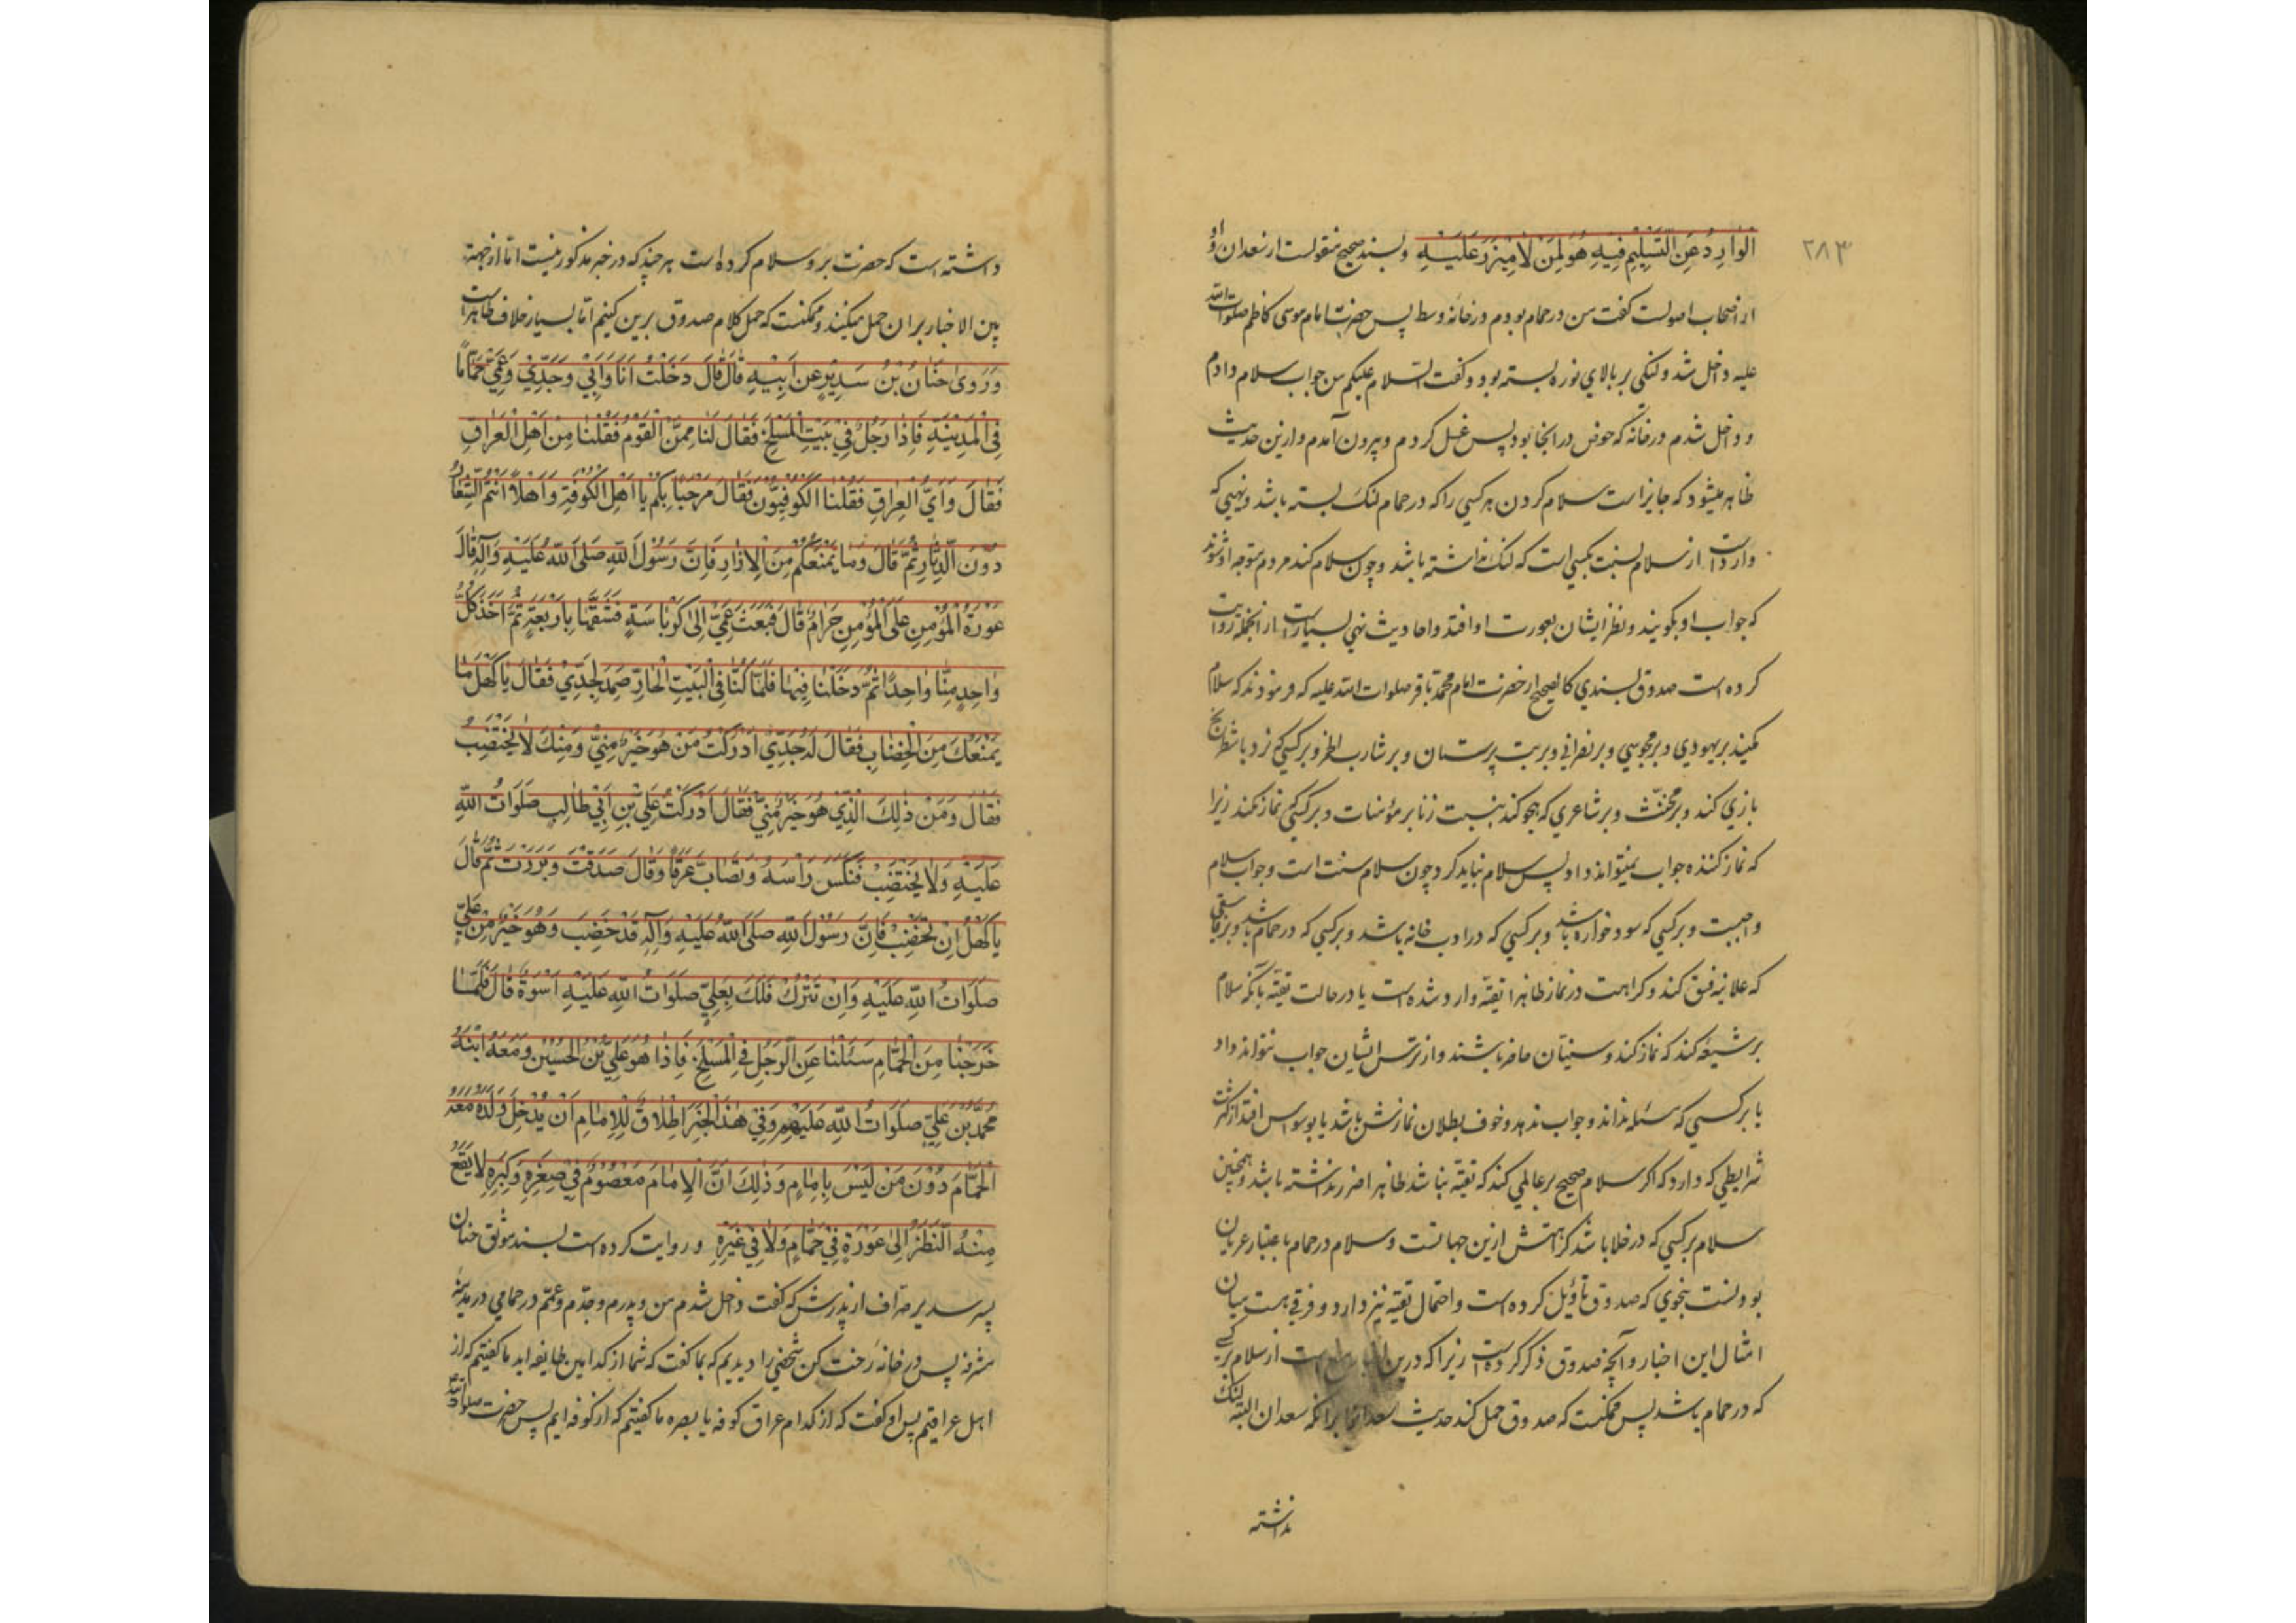 ۲۸۳
الوارد عن التسليم فيه هو لمن لا ميزر عليه و بسند صحيح منقولست از سعدان و او
از اصحاب اصولست کفت من در حمام بودم در خانه وسط پس حضرت امام موسی کاظم صلوات الله
علیه داخل شد و لنکی بر بالای نوره بسته بود و کفت السلام علیکم من جواب سلام دادم
و داخل شدم در خانه که حوض در انجا بود پس غسل کردم و بیرون آمدم و ازین حدیث
ظاهر میشود که جایز است سلام کردن هر کسی را که در حمام لنک بسته باشد و نهیی که
وارد است از سلام نسبت بکسی است که لنک نداشته باشد و چون سلام کند مردم متوجه او شوند
که جواب او بکویند و نظر ایشان بعورت او افتد و احادیث نهی بسیار است از انجمله روایت
کرده است صدوق بسندی کالصحیح از حضرت امام محمد باقر صلوات الله علیه که فرمودند که سلام
مکنید بر یهودی و بر مجوسی و بر نصرانی و بر بت پرستان و بر شارب الخمر و بر کسی که نرد یا شطرنج
بازی کند و بر مخنث و بر شاعری که هجو کند بنسبت زنا بر مؤمنات و بر کسی که نماز کند زیرا
که نماز کننده جواب نمیتواند داد پس سلام نباید کرد چون سلام سنت است و جواب سلام
واجبست و بر کسی که سود خواره باشد و بر کسی که در ادب خانه باشد و بر کسی که در حمام باشد و بر فاسقی
که علانیه فسق کند و کراهت در نماز ظاهرا تقیة وارد شده است یا در حالت تقیه بانکه سلام
بر شیعه کند که نماز کند و سنیان حاضر باشند و از ترس ایشان جواب نتواند داد
یا بر کسی که مسئله نداند و جواب ندهد و خوف بطلان نمازش باشد یا بوسواس افتد از کثرت
شرایطی که دارد که اکر سلام صحیح بر عالمی کند که تقیه نباشد ظاهرا ضرر نداشته باشد و همچنین
سلام بر کسی که در خلا باشد کراهتش ازین جهاتست و سلام در حمام باعتبار عریان
بودنست بنحوی که صدوق تاویل کرده است و احتمال تقیه نیز دارد و فرقی هست میان
امثال این اخبار و آنچه صدوق ذکر کرده است زیرا که درین از سلام بر کسی
که در حمام باشد پس ممکنست که صدوق حمل کند حدیث سعدان را بر انکه سعدان البته لنک
نداشته
داشته است که حضرت برو سلام کرده است هر چند که در خبر مذکور نیست اما از جهة جمع
بین الاخبار بران حمل میکنند و ممکنست که حمل کلام صدوق برین کنیم اما بسیار خلاف ظاهر است
وَرَوىٰ حَنٰانُ بْنُ سَدِيْرٍ عَنْ اَبِيْهِ قٰالَ قٰالَ دَخَلْتُ اَنَا وَاَبِيْ وَجَدِّيْ وَعَمِّيْ حَمّٰامًا
فِى الْمَدِيْنَةِ فَاِذٰا رَجُلٌ فِيْ بَيْتِ الْمَسْلَخِ فَقٰالَ لَنٰا مِمَّنِ الْقَوْمُ فَقُلْنٰا مِنْ اَهْلِ الْعِرٰاقِ
فَقٰالَ وَاَيُّ الْعِرٰاقِ فَقُلْنَا الْكُوْفِيُّوْنَ فَقٰالَ مَرْحَبًا بِكُمْ يٰا اَهْلَ الْكُوْفَةِ وَاَهْلًا اَنْتُمُ الشِّعٰارُ
دُوْنَ الدِّثٰارِ ثُمَّ قٰالَ وَمٰا يَمْنَعُكُمْ مِنَ الْاِزٰارِ فَاِنَّ رَسُوْلَ اللّٰهِ صَلَّى اللّٰهُ عَلَيْهِ وَآلِهِ قٰالَ
عَوْرَةُ الْمُؤْمِنِ عَلَى الْمُؤْمِنِ حَرٰامٌ قٰالَ فَبَعَثَ عَمِّيْ اِلىٰ كِرْبٰاسَةٍ فَشَقَّهٰا بِاَرْبَعَةٍ ثُمَّ اَخَذَ كُلُّ
وٰاحِدٍ مِنّٰا وٰاحِدًا ثُمَّ دَخَلْنٰا فِيْهٰا فَلَمّٰا كُنّٰا فِى الْبَيْتِ الْحٰارِّ صَمَدَ لِجَدِّيْ فَقٰالَ يٰا كَهْلُ مٰا
يَمْنَعُكَ مِنَ الْخِضٰابِ فَقٰالَ لَهُ جَدِّيْ اَدْرَكْتُ مَنْ هُوَ خَيْرٌ مِنِّيْ وَمِنْكَ لٰا يَخْتَضِبُ
فَقٰالَ وَمَنْ ذٰلِكَ الَّذِيْ هُوَ خَيْرٌ مِنِّيْ فَقٰالَ اَدْرَكْتُ عَلِيَّ بْنَ اَبِيْ طٰالِبٍ صَلَوٰاتُ اللّٰهِ
عَلَيْهِ وَلٰا يَخْتَضِبُ فَنَكَسَ رَأْسَهُ وَتَصٰابَّ عَرَقًا وَقٰالَ صَدَقْتَ وَبَرَرْتَ ثُمَّ قٰالَ
يٰا كَهْلُ اِنْ تَخْتَضِبْ فَاِنَّ رَسُوْلَ اللّٰهِ صَلَّى اللّٰهُ عَلَيْهِ وَآلِهِ قَدْ خَضَبَ وَهُوَ خَيْرٌ مِنْ عَلِيٍّ
صَلَوٰاتُ اللّٰهِ عَلَيْهِ وَاِنْ تَتْرُكْ فَلَكَ بِعَلِيٍّ صَلَوٰاتُ اللّٰهِ عَلَيْهِ اُسْوَةٌ قٰالَ فَلَمّٰا
خَرَجْنٰا مِنَ الْحَمّٰامِ سَئَلْنٰا عَنِ الرَّجُلِ فِى الْمَسْلَخِ فَاِذٰا هُوَ عَلِيُّ بْنُ الْحُسَيْنِ وَمَعَهُ ابْنُهُ
مُحَمَّدُ بْنُ عَلِيٍّ صَلَوٰاتُ اللّٰهِ عَلَيْهِمْ وَفِيْ هٰذَا الْخَبَرِ اِطْلٰاقٌ لِلْاِمٰامِ اَنْ يُدْخِلَ وَلَدَهُ مَعَهُ
الْحَمّٰامَ دُوْنَ مَنْ لَيْسَ بِاِمٰامٍ وَذٰلِكَ اَنَّ الْاِمٰامَ مَعْصُوْمٌ فِيْ صِغَرِهِ وَكِبَرِهِ لٰا يَقَعُ
مِنْهُ النَّظَرُ اِلىٰ عَوْرَةٍ فِيْ حَمّٰامٍ وَلٰا فِيْ غَيْرِهِ و روایت کرده است بسند موثق حنان
پسر سدیر صراف از پدرش که کفت داخل شدم من و پدرم و جدم و عمم در حمامی در مدینه
مشرفه پس در خانه رخت کن شخصی را دیدیم که بما کفت که شما از کدامین طایفه اید ما کفتیم که از
اهل عراقیم پس او کفت که از کدام عراق کوفه یا بصره ما کفتیم که از کوفه ایم پس حضرت صلوات الله